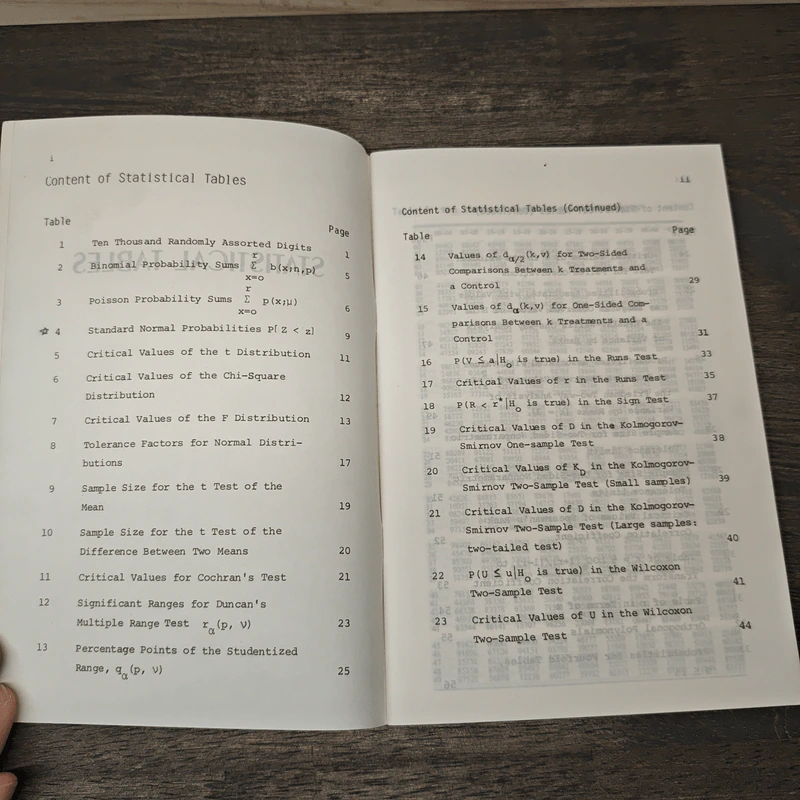 i
Content of Statistical Tables
Table
Page
1 Ten Thousand Randomly Assorted Digits 1
2 Binomial Probability Sums r Σ x=o b(x;n,p) 5
3 Poisson Probability Sums r Σ x=o p(x;μ) 6
☆ 4 Standard Normal Probabilities P[ Z < z] 9
5 Critical Values of the t Distribution 11
6 Critical Values of the Chi-Square
Distribution 12
7 Critical Values of the F Distribution 13
8 Tolerance Factors for Normal Distri-
butions 17
9 Sample Size for the t Test of the
Mean 19
10 Sample Size for the t Test of the
Difference Between Two Means 20
11 Critical Values for Cochran's Test 21
12 Significant Ranges for Duncan's
Multiple Range Test rα(p, ν) 23
13 Percentage Points of the Studentized
Range, qα(p, ν) 25
ii
Content of Statistical Tables (Continued)
Table Page
14 Values of dα/2(k,v) for Two-Sided
Comparisons Between k Treatments and
a Control 29
15 Values of dα(k,v) for One-Sided Com-
parisons Between k Treatments and a
Control 31
16 P(V ≤ a|Ho is true) in the Runs Test 33
17 Critical Values of r in the Runs Test 35
18 P(R < r*|Ho is true) in the Sign Test 37
19 Critical Values of D in the Kolmogorov-
Smirnov One-sample Test 38
20 Critical Values of KD in the Kolmogorov-
Smirnov Two-Sample Test (Small samples) 39
21 Critical Values of D in the Kolmogorov-
Smirnov Two-Sample Test (Large samples:
two-tailed test) 40
22 P(U ≤ u|Ho is true) in the Wilcoxon
Two-Sample Test 41
23 Critical Values of U in the Wilcoxon
Two-Sample Test 44